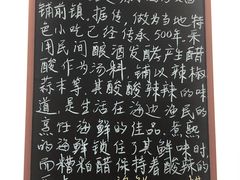 铺前镇,据传,做为当地特
色小吃已经传承500年,采
用民间酿酒发酵产生醋
酸作为汤料,辅以辣椒
蒜末等,其酸辣辣的味
道,是生活在海边渔民的
烹饪海鲜的佳品.煮熟
的海鲜锁住了其鲜味时
而糟粕醋保持着酸辣的